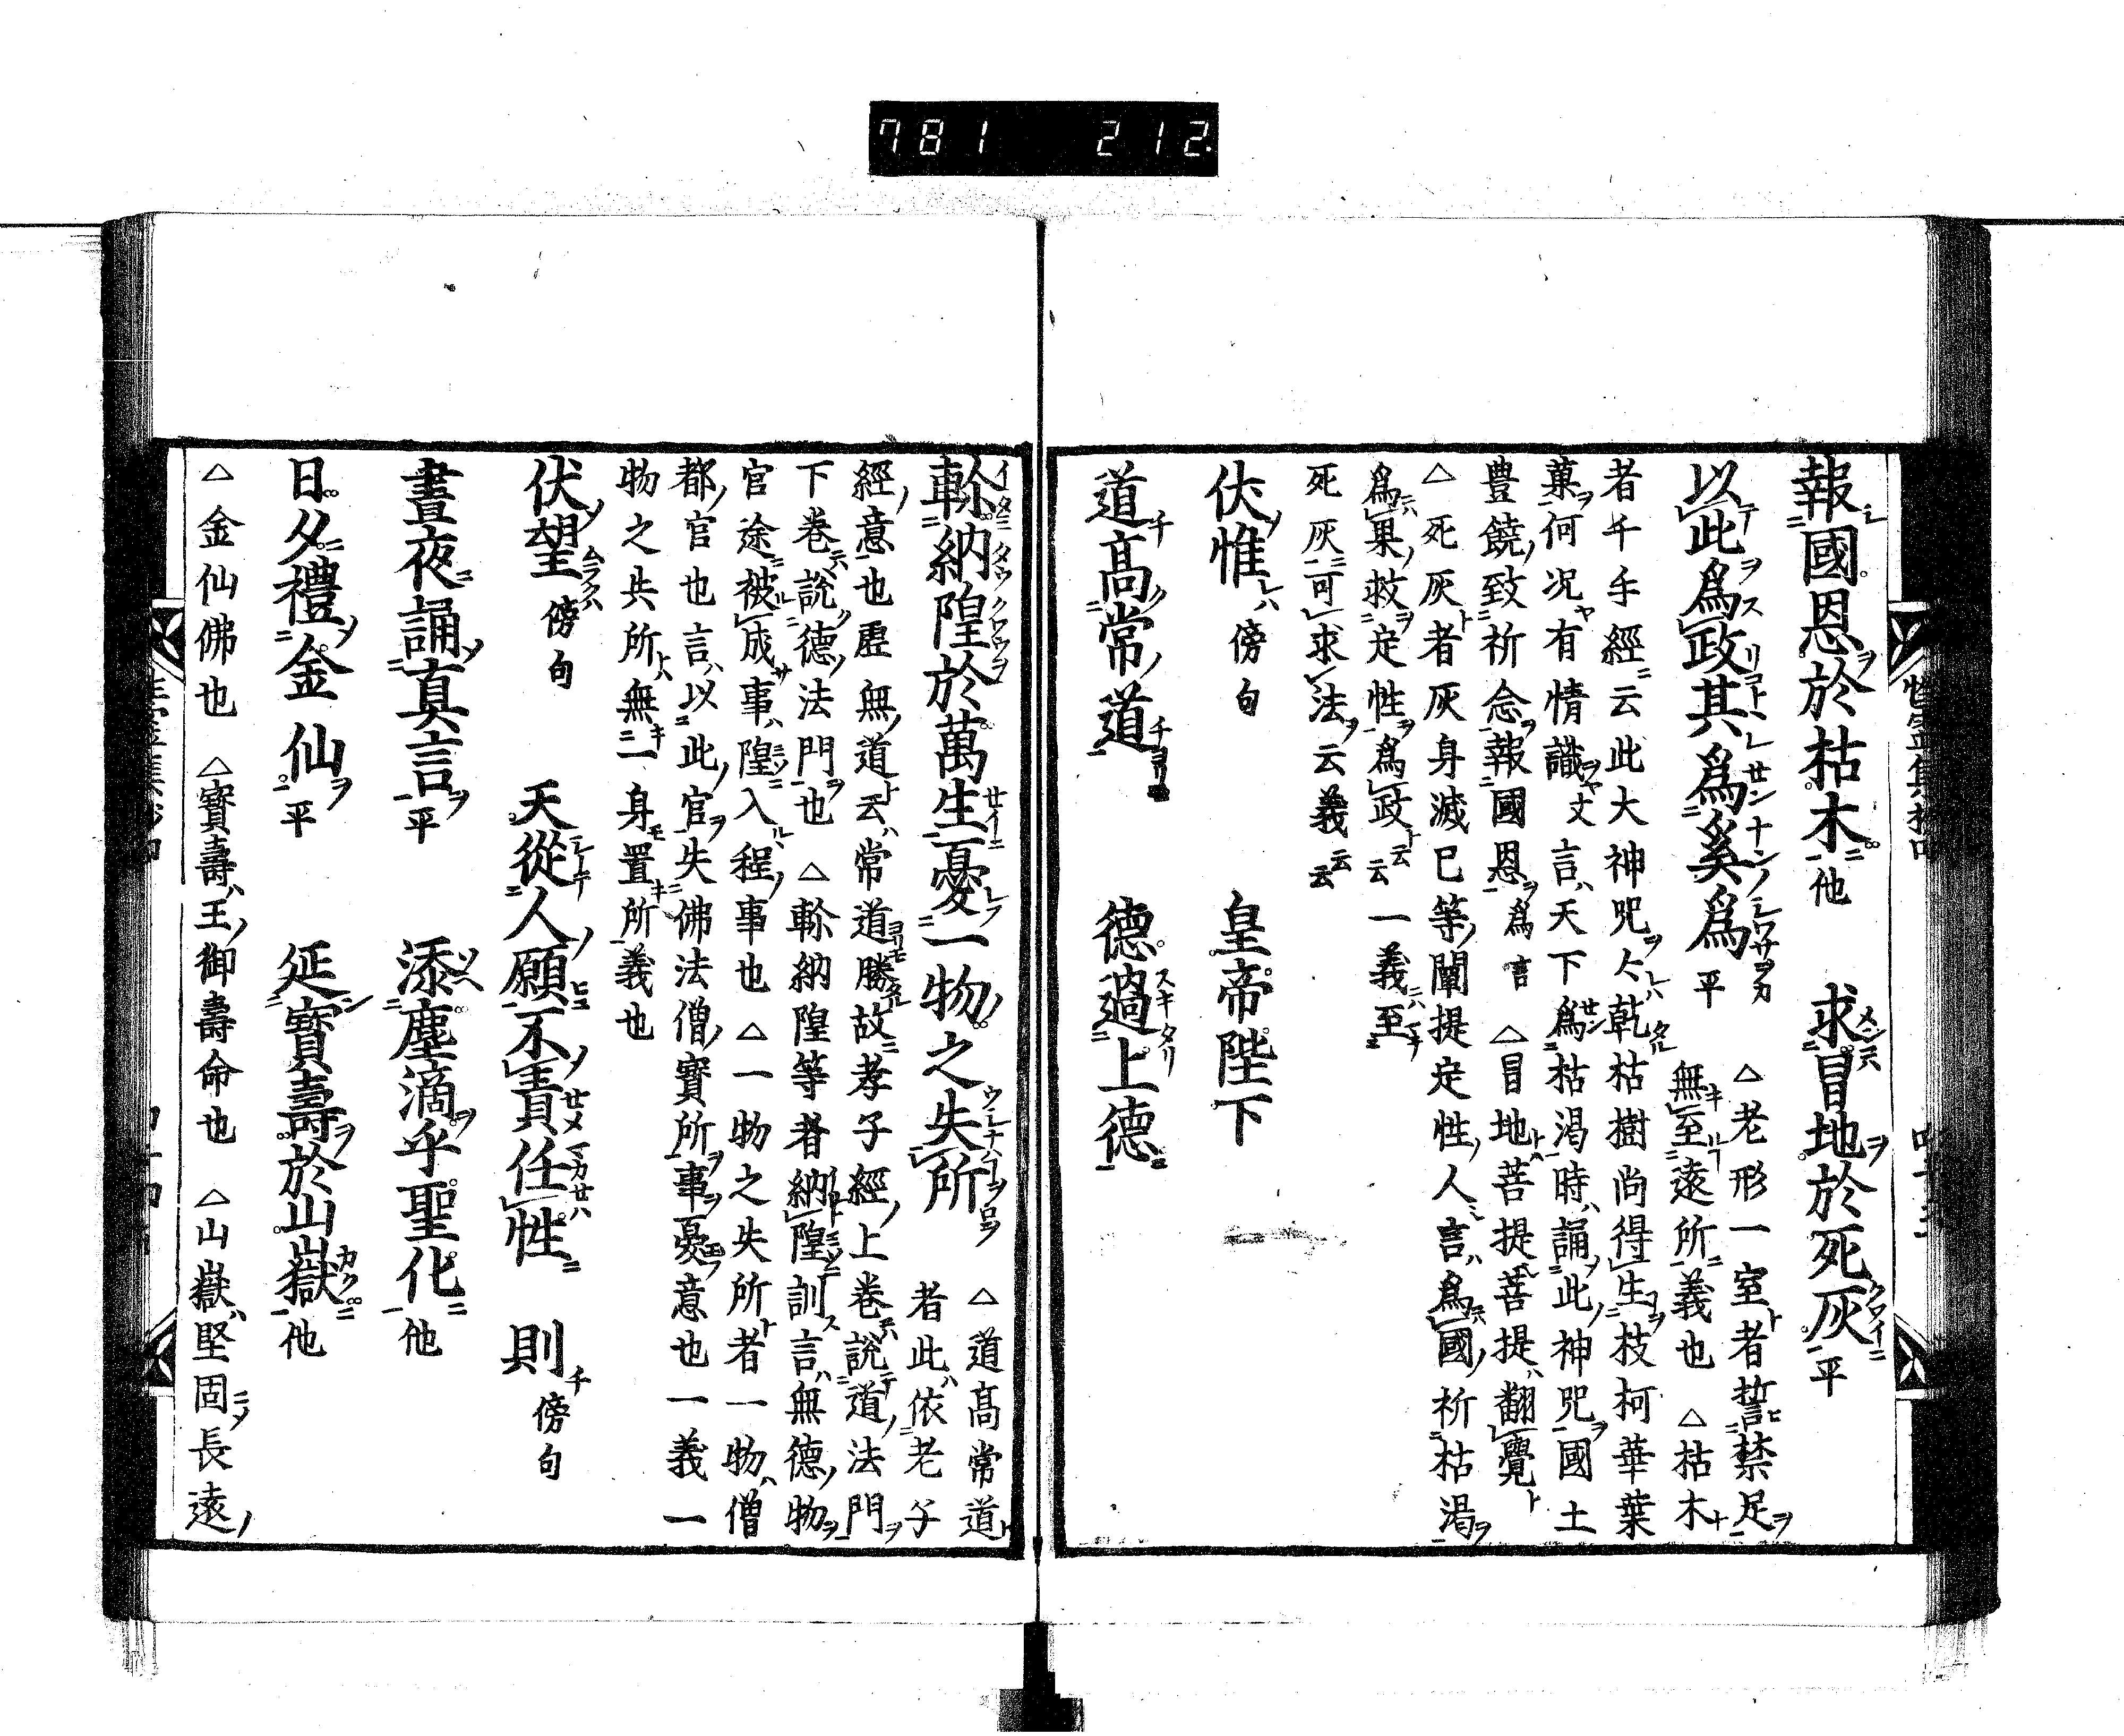 781 212.
報國恩於枯木他 求冒地於死灰平
以此爲政其爲奚爲平 △老形一室者誓禁足
無至遠所義也 △枯木
者千手經云此大神咒人乾枯樹尚得生枝柯華葉
菓何况有情識文言天下爲枯渇時誦此神咒國土
豊饒致祈念報國恩爲言 △冒地菩提菩提翻覺
△死灰者灰身滅已等闡提定性人言爲國祈枯渇
爲果救定性爲政云云一義至
死灰可求法云義云云
伏惟傍句 皇帝陛下
道髙常道 德過上德
軫納隍於萬生憂一物之失所 △道髙常道
者此依老子
經意也虚無道云常道勝故孝子經上卷說道法門
下巻說德法門也 △軫納隍等者納隍訓言無德物
官途被成事隍入程事也 △一物之失所者一物僧
都官也言以此官失佛法僧寳所事憂意也一義一
物之共所無一身置所義也
伏望傍句 天從人願不責任性 則傍句
晝夜誦真言平 添塵滴乎聖化他
日夕禮金仙平 延寳壽於山嶽他
△金仙佛也 △寳壽王御壽命也 △山嶽堅固長遠